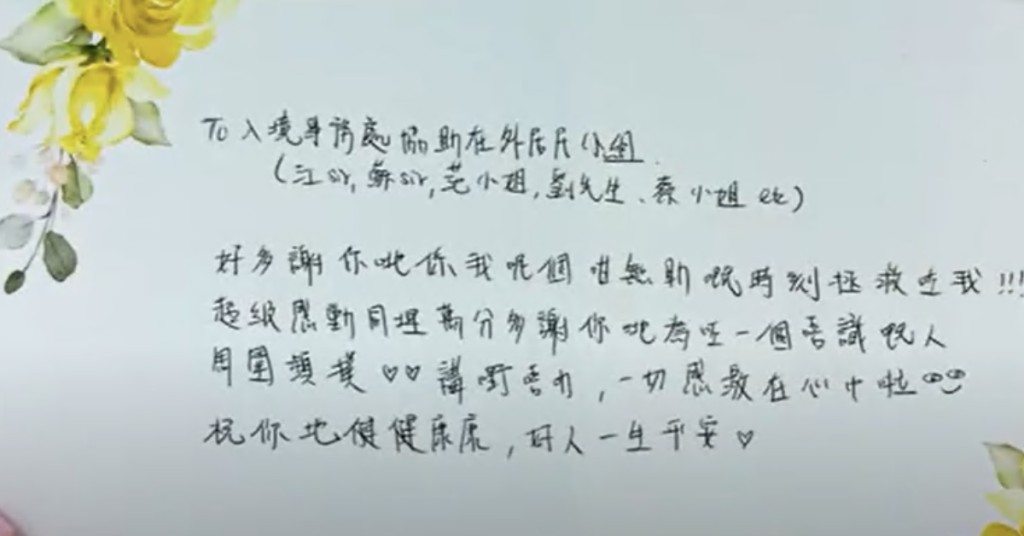 To 入境事務處協助在外居民小組
(江sir, 蘇sir, 范小姐, 劉先生、蔡小姐 etc)
好多謝你哋係我呢個咁無助嘅時刻拯救咗我!!!
超級感動同埋萬分多謝你哋為咗一個唔識嘅人
周圍頻撲♡♡ 講嘢唔叻,一切感激在心中啦
祝你地健健康康,好人一生平安♡